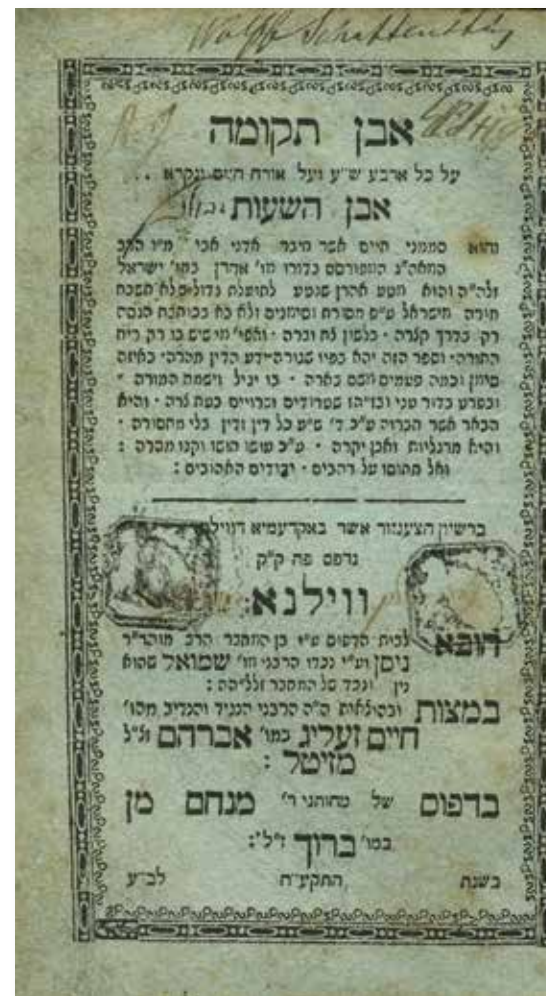 Wolff
אבן תקומה
על כל ארבע ש״ע ועל אורח חיים ונקרא
אבן השעות
והוא סממני חיים אשר חיבר אדני אבי מ״ו הרב
המאה״ג המפורסם בדורו מו׳ אהרן במו׳ ישראל
זלה״ה והוא נטע אהרן שנטע לתועלת גדול שלא תשכח
תורה מישראל ע״פ מסורת וסימנים ולא בא בכותבת הגסה
רק בדרך קלרה · בלשון לח וברה · ואפי׳ מי שיש בו רק ריח
התורה · וספר הזה יהא בפיו שגורה ידע הדין מהרה · באיזה
סימן וכמה פעמים משם בארה · בו יגיל וישמח המורה
ובפרט בדור עני ובזיהו שטרודים וטרויים בעת לרה · והיא
הבאר אשר הכרוה ע״כ ד׳ ש״ע כל דין ודין בלי מחסורה ·
והיא מרגליות ואבן יקרה · ע״כ עושו חושו וקנו מכרה :
ואל תחוסו על רהבים · ידידים האהובים :
ברשיון הצענזור אשר באקדעמיא דווילנא
נדפס פה ק״ק
ווילנא:
הובא לבית הדפוס ע״י בן המחבר הרב מוהר״ר
ניסן וע״י נכדו הרבני מו׳ שמואל שהוא
נין ונכד של המחבר זללה״ה :
במצות ובהולאות ה״ה הרבני הנגיד והנדיב מהו׳
חיים זעליג במו׳ אברהם ז״ל
מזיטל :
בדפוס של מחותני ר׳ מנחם מן
במו׳ ברוך ז״ל :
בשנת התקע״ח לב״ע